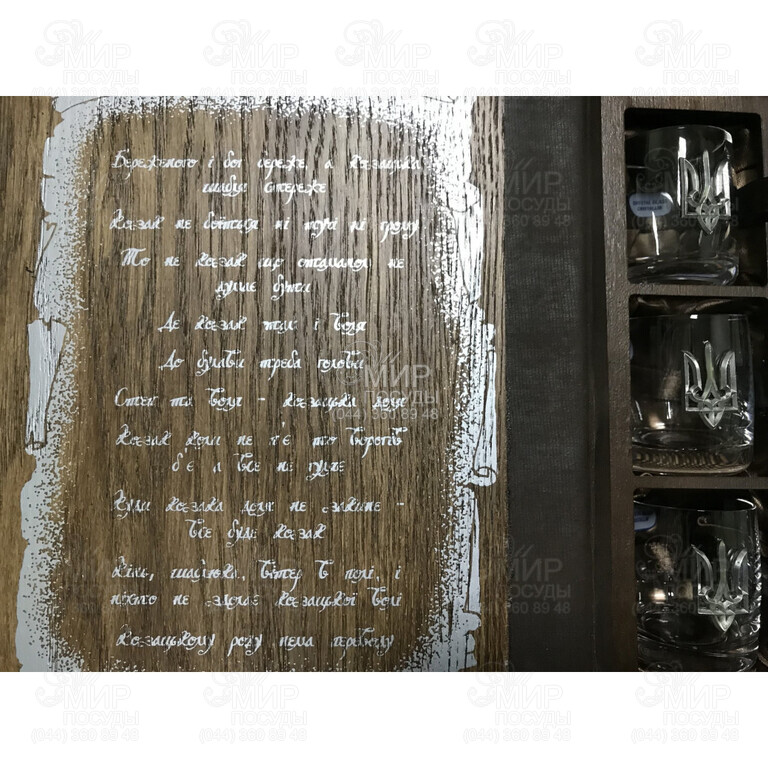 Береженого і бог береже, а козацька
шабля стереже
Козак не боїться ні тучі ні грому
То не козак що отаманом не
думає бути
Де козак там і воля
До булави треба голови
Степ та воля - козацька доля
Козак коли не п'є то ворогів
б'є а все не гуляє
Куди козака доля не закине -
все буде козак
Кінь, шаблюка, вітер в полі, і
ніхто не здолає козацької волі
Козацькому роду нема переводу
МИР
ПОСУДЫ
(044) 360 89 48